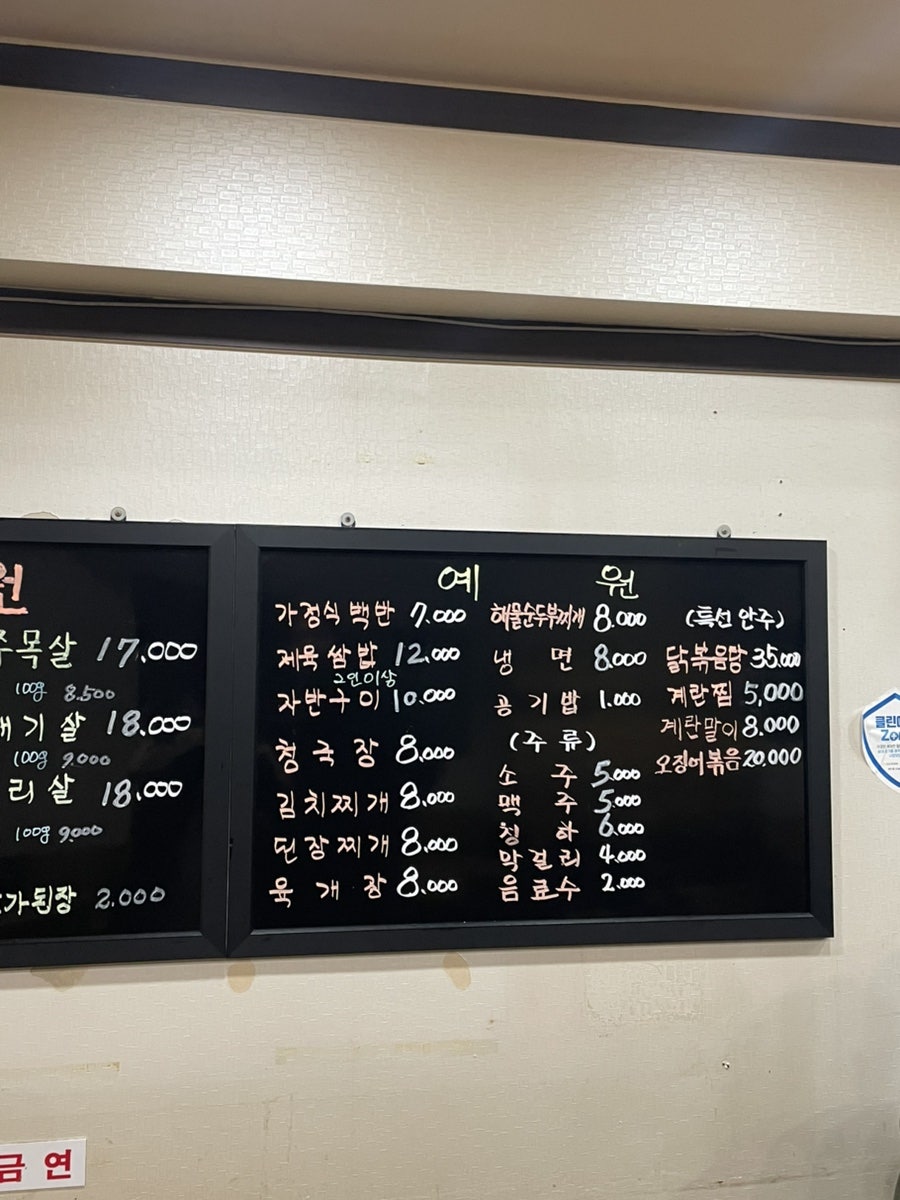 원
목살 17.000
100g 8.500
기살 18.000
100g 9.000
리살 18.000
100g 9000
가된장 2.000
예 원
가정식백반 7.000
제육쌈밥 12.000
2인이상
자반구이 10.000
청국장 8.000
김치찌개 8.000
된장찌개 8.000
육개장 8.000
해물순두부찌개 8.000
냉면 8.000
공기밥 1.000
(주류)
소주 5.000
맥주 5.000
청하 6.000
막걸리 4.000
음료수 2.000
(특선 안주)
닭볶음탕 35.000
계란찜 5,000
계란말이 8.000
오징어볶음 20.000
클린
Zo
금연